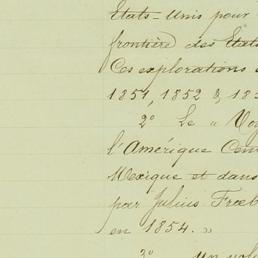 États-Unis pour
frontière des États
Ces explorations
1851, 1852 & 185
2º Le « Voy
l'Amérique Cen
Mexique et dans
par Julius Froeb
en 1854. »
3º un vol